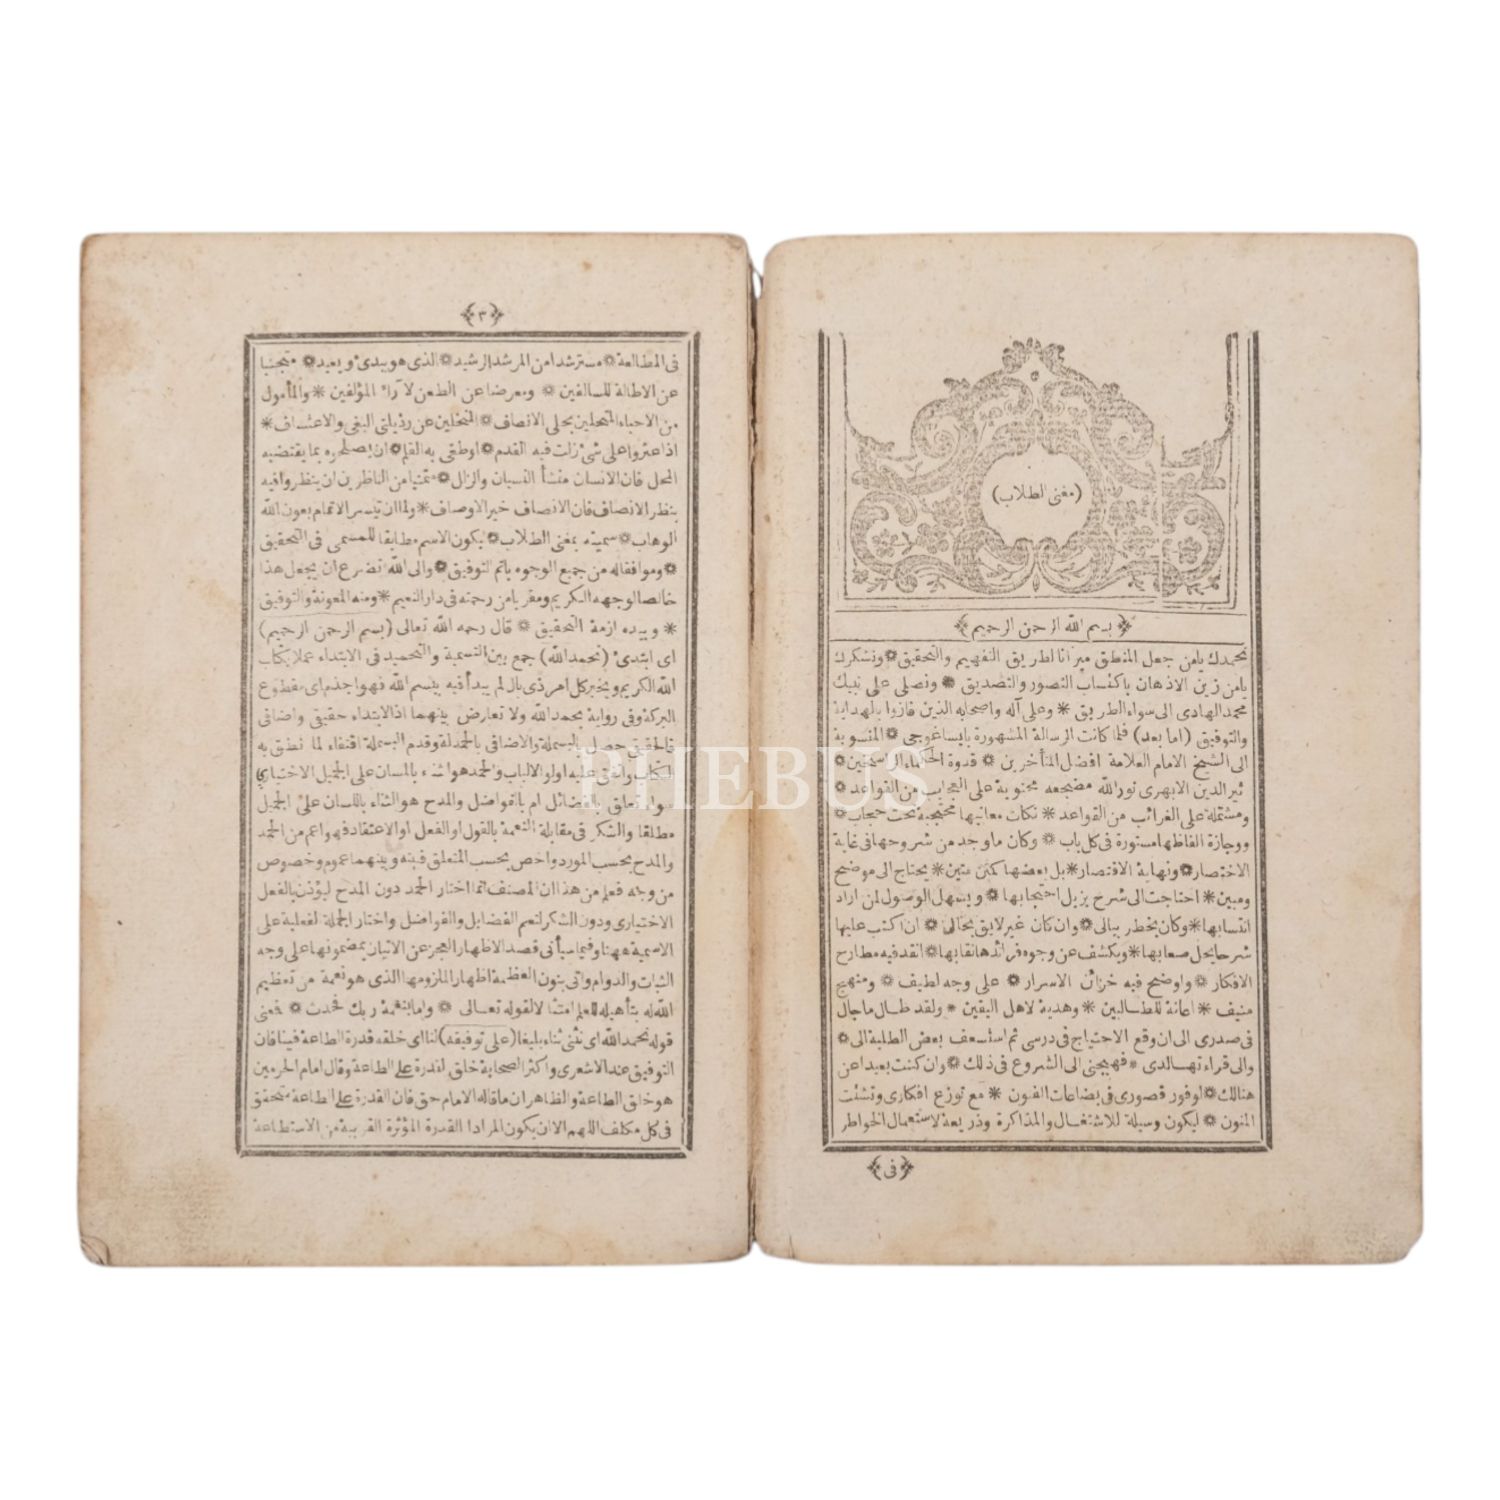 (مغنى الطلاب)
﴿بسم الله الرحمن الرحيم﴾
نحمدك يامن جعل المنطق ميزانا لطريق التفهيم والتحقيق ❁ ونشكرك
يامن زين الاذهان باكتساب التصور والتصديق ❁ ونصلى على نبيك
محمد الهادى الى سواء الطريق ❁ وعلى آله واصحابه الذين فازوا بالهداية
والتوفيق (اما بعد) فلما كانت الرسالة المشهورة بايساغوجى ❁ المنسوبة
الى الشيخ الامام العلامة افضل المتأخرين ❁ قدوة الحكماء الراسخين ❁
اثير الدين الابهرى نور الله مضجعه محتوية على العجاب من القواعد ❁
ومشتملة على الغرائب من القواعد ❁ نكات معانيها محتجبة تحت حجاب ❁
ووجازة الفاظها مستورة فى كل باب ❁ وكان ماوجد من شروحها فى غاية
الاختصار ❁ ونهاية الاقتصار ❁ بل بعضها كمتن متين ❁ يحتاج الى موضح
ومبين ❁ احتاجت الى شرح يزيل احتجابها ❁ ويسهل الوصول لمن اراد
انتسابها ❁ وكان يخطر ببالى ❁ وان كان غير لايق بحالى ❁ ان اكتب عليها
شرحا يحل صعابها ❁ ويكشف عن وجوه فرائدها نقابها ❁ انقد فيه مطارح
الافكار ❁ واوضح فيه خزائن الاسرار ❁ على وجه لطيف ❁ ومنهج
منيف ❁ اعانة للطالبين ❁ وهدية لاهل اليقين ❁ ولقد طال ماجال
فى صدرى الى ان وقع الاحتياج فى درسى ثم استسعف بعض الطلبة الى ❁
والى قراءته لدى ❁ فهيجنى الى الشروع فى ذلك ❁ وان كنت بعيدا عن
هنالك ❁ لوفور قصورى فى بضاعات الفنون ❁ مع توزع افكارى وتشتت
المنون ❁ ليكون وسيلة للاشتغال والمذاكرة وذريعة لاستعمال الخواطر
﴿فى﴾
﴿٣﴾
فى المطالعة ❁ مسترشدا من المرشد الرشيد ❁ الذى هو يبدئ ويعيد ❁ متجنبا
عن الاطالة للسالفين ❁ ومعرضا عن الطعن لآراء المؤلفين ❁ والمأمول
من الاحباء المتحلين بحلى الانصاف ❁ المتخلين عن رذيلتى البغى والاعتساف ❁
اذا عثروا على شئ زلت فيه القدم ❁ او طغى به القلم ❁ ان يصلحوه بما يقتضيه
المحل فان الانسان منشأ النسيان والزلل ❁ متمنيا من الناظرين ان ينظروا فيه
بنظر الانصاف فان الانصاف خير الاوصاف ❁ ولما ان تيسر الاتمام بعون الله
الوهاب ❁ سميته بمغنى الطلاب ❁ ليكون الاسم مطابقا للمسمى فى التحقيق
❁ وموافقا له من جميع الوجوه باتم التوفيق ❁ والى الله اتضرع ان يجعل هذا
خالصا لوجهه الكريم ومقربا من رحمته فى دار النعيم ❁ ومنه المعونة والتوفيق
❁ وبيده ازمة التحقيق ❁ قال رحمه الله تعالى (بسم الرحمن الرحيم)
اى ابتدئ (نحمد الله) جمع بين التسمية والتحميد فى الابتداء عملا بكتاب
الله الكريم وبخبر كل امر ذى بال لم يبدأ فيه ببسم الله فهو اجذم اى مقطوع
البركة وفى رواية بحمد الله ولا تعارض بينهما اذ الابتداء حقيقى واضافى
فالحقيقى حصل بالبسملة والاضافى بالحمدلة وقدم البسملة اقتفاء لما نطق به
الكتاب واتفق عليه اولو الالباب والحمد هو الثناء باللسان على الجميل الاختيارى
سواء تعلق بالفضائل ام بالفواضل والمدح هو الثناء باللسان على الجميل
مطلقا والشكر فى مقابلة النعمة بالقول او الفعل او الاعتقاد فهو اعم من الحمد
والمدح بحسب المورد واخص بحسب المتعلق فبينه وبينهما عموم وخصوص
من وجه فعلم من هذا ان المصنف انما اختار الحمد دون المدح ليؤذن بالفعل
الاختيارى ودون الشكر لتعم الفضايل والفواضل واختار الجملة الفعلية على
الاسمية ههنا وفيما سيأتى قصدا لاظهار العجز عن الاتيان بمضمونها على وجه
الثبات والدوام واتى بنون العظمة اظهارا لملزومها الذى هو نعمة من تعظيم
الله له بتأهيله للعلم امتثالا لقوله تعالى ❁ واما بنعمة ربك فحدث ❁ فمعنى
قوله نحمد الله اى نثنى ثناء بليغا (على توفيقه) لنا اى خلقه قدرة الطاعة فينا فان
التوفيق عند الاشعرى واكثر الصحابة خلق لقدرة على الطاعة وقال امام الحرمين
هو خلق الطاعة والظاهر ان ماقاله الامام حق فان القدرة على الطاعة متحقق
فى كل مكلف اللهم الا ان يكون المراد القدرة المؤثرة القريبة من الاستطاعة
PHEBUS